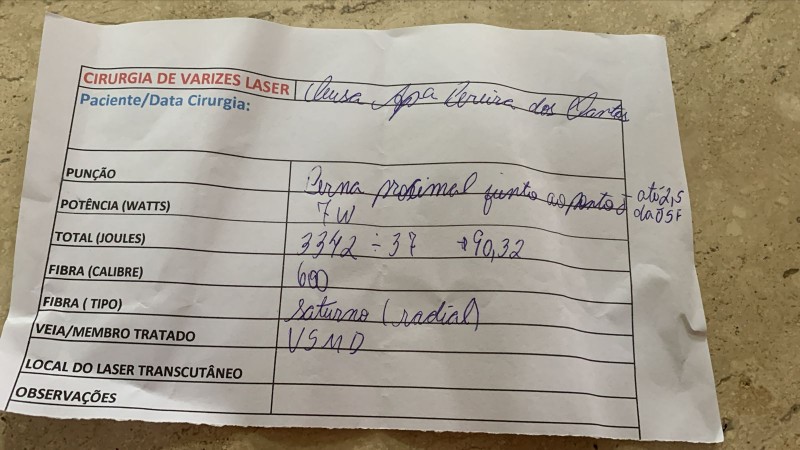 CIRURGIA DE VARIZES LASER Cleusa Apa Pereira dos Santos
Paciente/Data Cirurgia:
PUNÇÃO Perna proximal junto ao até 2,5
da JSF
POTÊNCIA (WATTS) 7 W
TOTAL (JOULES) 3342 ÷ 37 → 90,32
FIBRA (CALIBRE) 600
FIBRA ( TIPO) Saturno (radial)
VEIA/MEMBRO TRATADO VSMD
LOCAL DO LASER TRANSCUTÂNEO
OBSERVAÇÕES